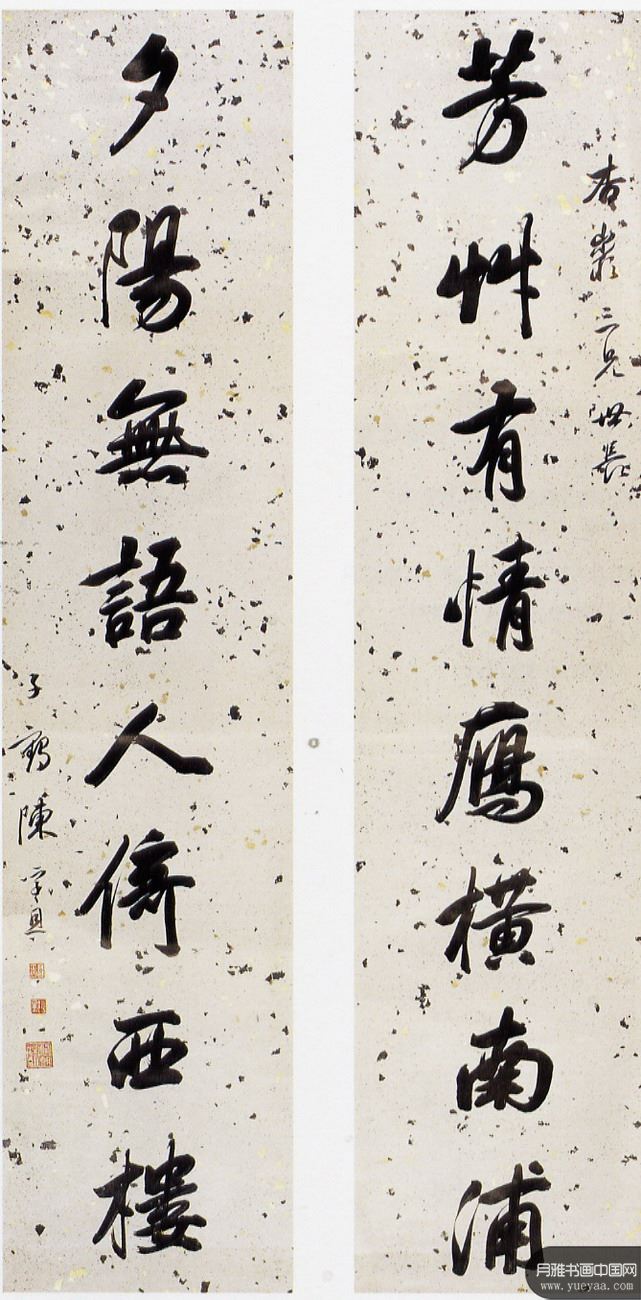 杏 三兄世長
芳艸有情鴈橫南浦
夕陽無語人倚西樓
子鶴陳孚恩
月雅书画中国网
www.yueyaa.com